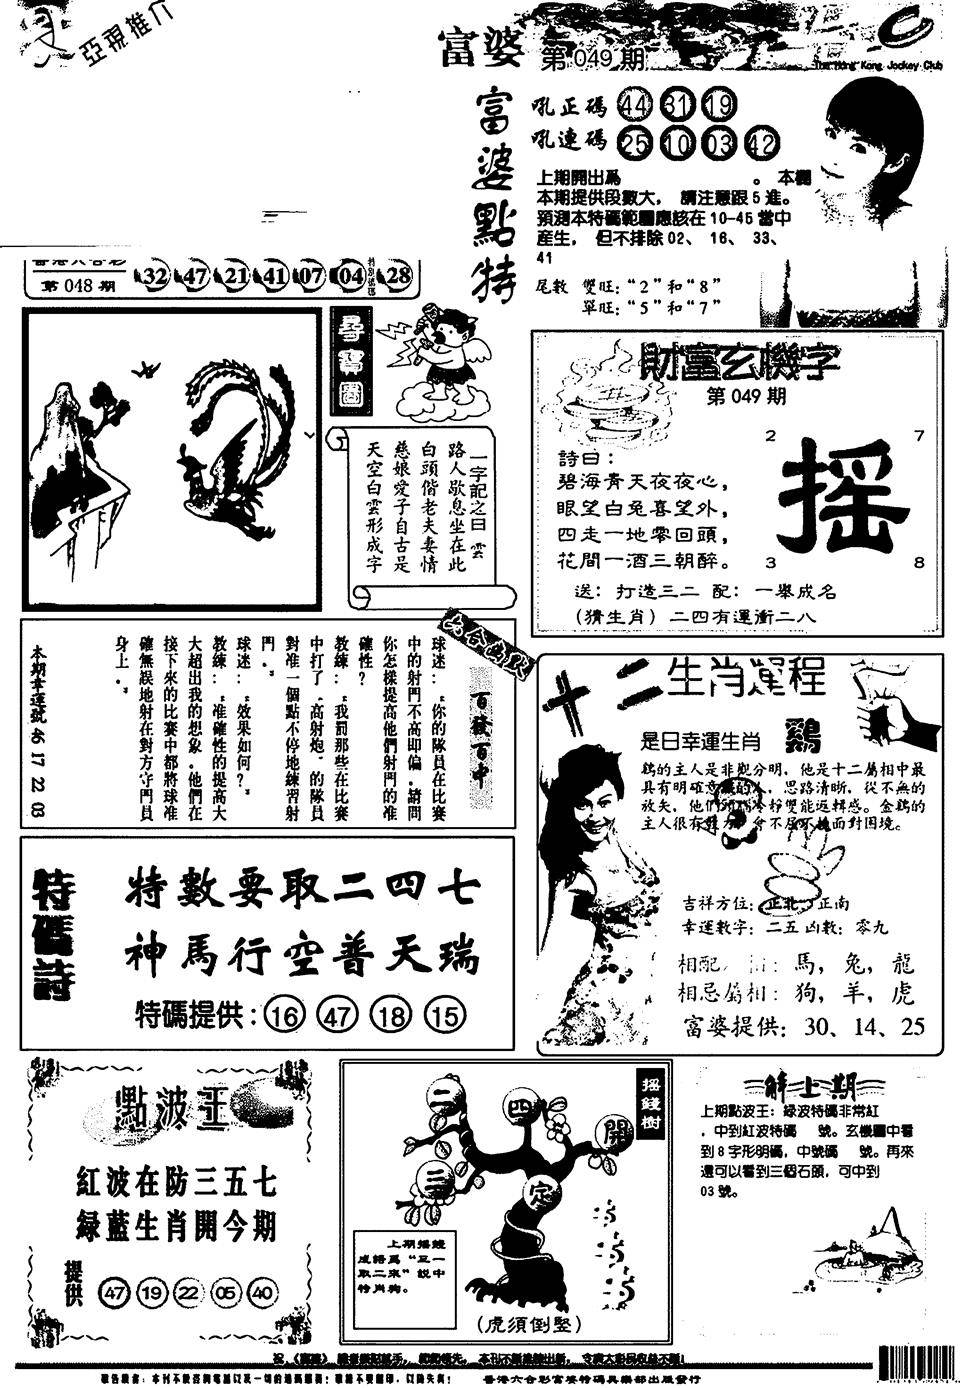 亞視推介
富婆 第049期
The Hong Kong Jockey Club
富婆點特
吼正碼 44 31 19
吼連碼 25 10 03 42
上期開出爲 。本欄
本期提供段數大，請注意跟5進。
預測本特碼範圍應該在10-45當中
産生，但不排除02、16、33、
41
尾數 雙旺：“2”和“8”
單旺：“5”和“7”
香港六合彩
第048期
32 47 21 41 07 04 特別號碼 28
尋寶圖
一字記之曰 雲
路人歇息坐在此
白頭偕老夫妻情
慈娘愛子自古是
天空白雲形成字
財富玄機字
第049期
詩曰：
碧海青天夜夜心，
眼望白兔喜望外，
四走一地零回頭，
花間一酒三朝醉。
2 7
搖
3 8
送：打造三二 配：一舉成名
（猜生肖）二四有運衝二八
六合幽默
百發百中
球迷：“你的隊員在比賽
中的射門不高即偏，請問
你怎樣提高他們射門的准
確性？
教練：“我罰那些在比賽
中打了“高射炮”的隊員
對准一個點不停地練習射
門”。
球迷：“效果如何？”
教練：“准確性的提高大
大超出我的想象。他們在
接下來的比賽中都將球准
確無誤地射在對方守門員
身上”。
本期幸運號 46 17 22 03
十二生肖運程
是日幸運生肖 鷄
鷄的主人是非觀分明，他是十二屬相中最
具有明確意識的人，思路清晰，從不無的
放矢，他們
主人很有 面對困境。
吉祥方位：正北、正南
幸運數字：二五 凶數：零九
相配 ：馬，兔，龍
相忌屬相：狗，羊，虎
富婆提供：30、14、25
特碼詩
特數要取二四七
神馬行空普天瑞
特碼提供：16 47 18 15
點波王
紅波在防三五七
緑藍生肖開今期
提供 47 19 22 05 40
搖錢樹
二 四 開
三 定
上期搖錢
成語爲“五一
取二來”説中
特肖狗。
（虎須倒竪）
解上期
上期點波王：緑波特碼非常紅
，中到紅波特碼 號。玄機圖中看
到8字形明碼，中號碼 號。再來
還可以看到三個石頭，可中到
03號。
香港六合彩富婆特碼俱樂部出版發行